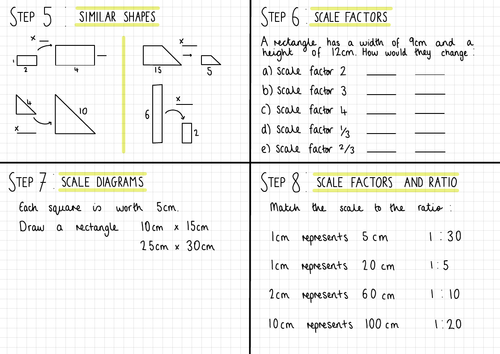 STEP 5 : SIMILAR SHAPES
x __
1
2
4
__
x __
15
5
4
10
x __
6
x __
2
STEP 6 : SCALE FACTORS
A rectangle has a width of 9cm and a
height of 12cm. How would they change :
a) Scale factor 2 ____ ____
b) Scale factor 3 ____ ____
c) Scale factor 4 ____ ____
d) Scale factor 1/3 ____ ____
e) Scale factor 2/3 ____ ____
STEP 7 : SCALE DIAGRAMS
Each square is worth 5cm.
Draw a rectangle 10cm x 15cm
25cm x 30cm
STEP 8 : SCALE FACTORS AND RATIO
Match the scale to the ratio :
1cm represents 5cm 1 : 30
1cm represents 20cm 1 : 5
2cm represents 60cm 1 : 10
10cm represents 100cm 1 : 20